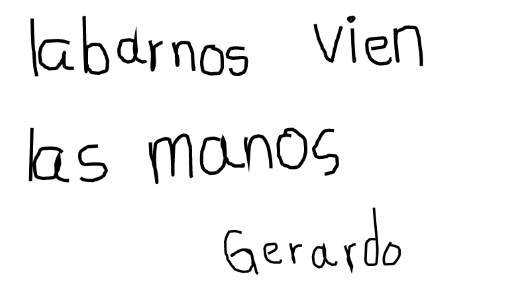 labarnos vien
las manos
Gerardo